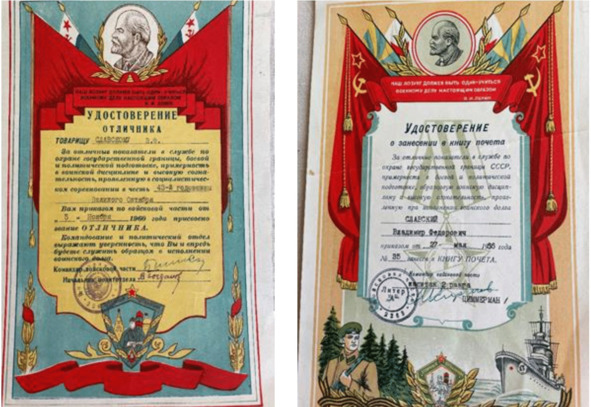 НАШ ЛОЗУНГ ДОЛЖЕН БЫТЬ ОДИН-УЧИТЬСЯ
ВОЕННОМУ ДЕЛУ НАСТОЯЩИМ ОБРАЗОМ
В.И. ЛЕНИН
УДОСТОВЕРЕНИЕ
ОТЛИЧНИКА
ТОВАРИЩУ СЛАВСКОМУ
За отличные показатели в службе по
охране государственной границы, боевой
и политической подготовке, примерность
в воинской дисциплине и высокую созна-
тельность, проявленную в социалистичес-
ком соревновании в честь 43-й годовщины
Великого Октября
Вам приказом по войсковой части от
3 Ноября 1960 года присвоено
звание ОТЛИЧНИКА.
Командование и политический отдел
выражают уверенность, что Вы и впредь
будете служить образцом в исполнении
воинского долга.
Командир войсковой части
Начальник политотдела
НАШ ЛОЗУНГ ДОЛЖЕН БЫТЬ ОДИН-УЧИТЬСЯ
ВОЕННОМУ ДЕЛУ НАСТОЯЩИМ ОБРАЗОМ
В.И. ЛЕНИН
УДОСТОВЕРЕНИЕ
о занесении в книгу почета
За отличные показатели в службе по
охране государственной границы СССР,
примерность в боевой и политической
подготовке, образцовую воинскую дисцип-
лину и высокую
СЛАВСКИЙ
Владимир Федорович
приказом от 27 мая 1955 года
№ 35 занесен в КНИГУ ПОЧЕТА.
Командир войсковой части
2 ранга
ЦИММЕРМАН
Литер